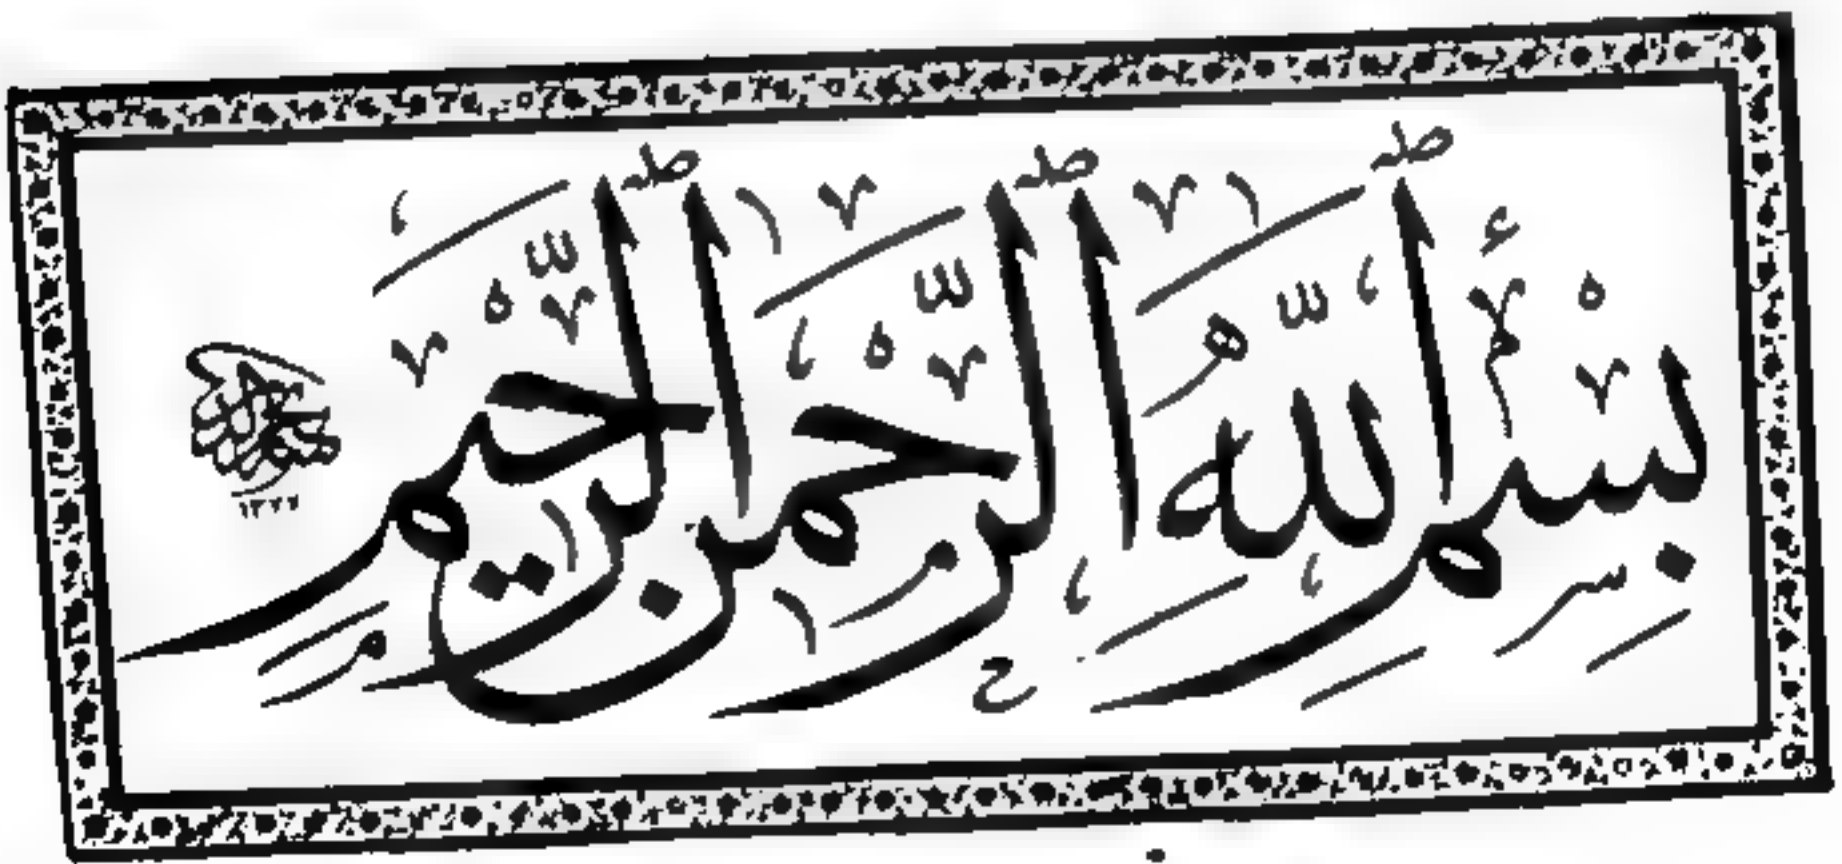 بِسْمِ ٱللَّهِ ٱلرَّحْمَٰنِ ٱلرَّحِيمِ
١٣٢٧